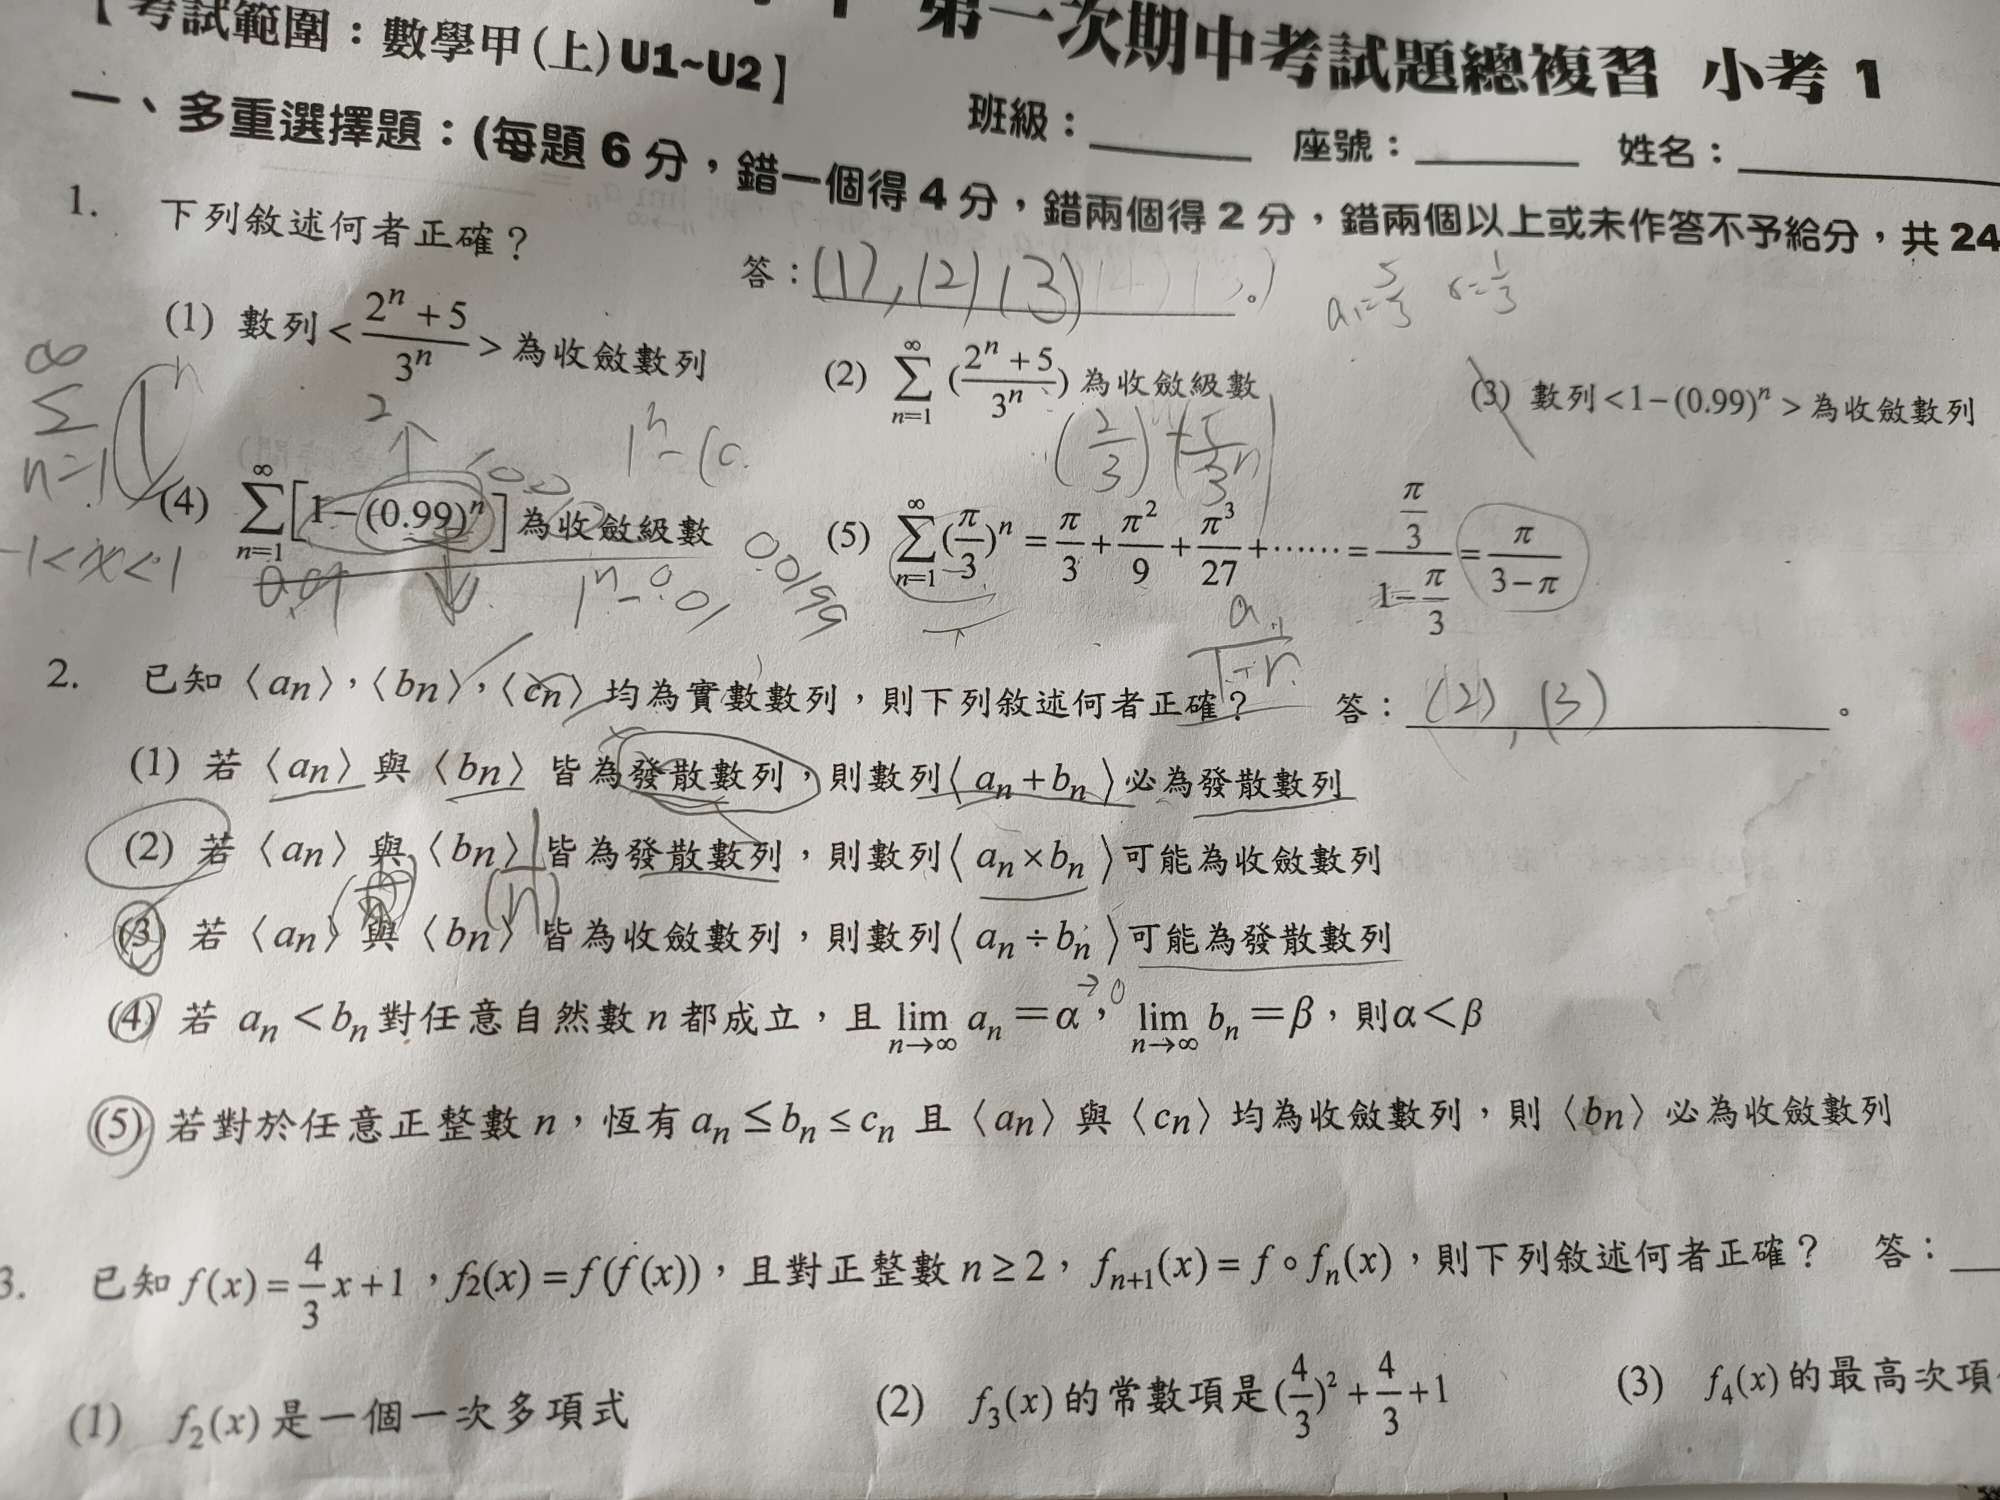 第一次期中考試題總複習 小考 1
【考試範圍：數學甲(上)U1~U2】
班級：＿＿＿ 座號：＿＿＿ 姓名：＿＿＿
一、多重選擇題：(每題 6 分，錯一個得 4 分，錯兩個得 2 分，錯兩個以上或未作答不予給分，共 24
1. 下列敘述何者正確？ 答：(1),(2)(3)。
a₁=5/3 r=1/3
(1) 數列<(2^n+5)/3^n>為收斂數列 (2) ∑_{n=1}^{∞}((2^n+5)/3^n)為收斂級數 (3) 數列<1-(0.99)^n>為收斂數列
(4) ∑_{n=1}^{∞}[1-(0.99)^n]為收斂級數 (5) ∑_{n=1}^{∞}(π/3)^n=π/3+π²/9+π³/27+……=(π/3)/(1-π/3)=π/(3-π)
-1<x<1
2. 已知〈an〉,〈bn〉,〈cn〉均為實數數列，則下列敘述何者正確？ 答：(2),(3)。
(1) 若〈an〉與〈bn〉皆為發散數列，則數列〈an+bn〉必為發散數列
(2) 若〈an〉與〈bn〉皆為發散數列，則數列〈an×bn〉可能為收斂數列
(3) 若〈an〉與〈bn〉皆為收斂數列，則數列〈an÷bn〉可能為發散數列
(4) 若 an<bn對任意自然數n都成立，且 lim_{n→∞} an=α，lim_{n→∞} bn=β，則α<β
(5) 若對於任意正整數n，恆有an≤bn≤cn 且〈an〉與〈cn〉均為收斂數列，則〈bn〉必為收斂數列
3. 已知f(x)=4/3x+1，f₂(x)=f(f(x))，且對正整數n≥2，f_{n+1}(x)=f∘fn(x)，則下列敘述何者正確？ 答：
(1) f₂(x)是一個一次多項式 (2) f₃(x)的常數項是(4/3)²+4/3+1 (3) f₄(x)的最高次項